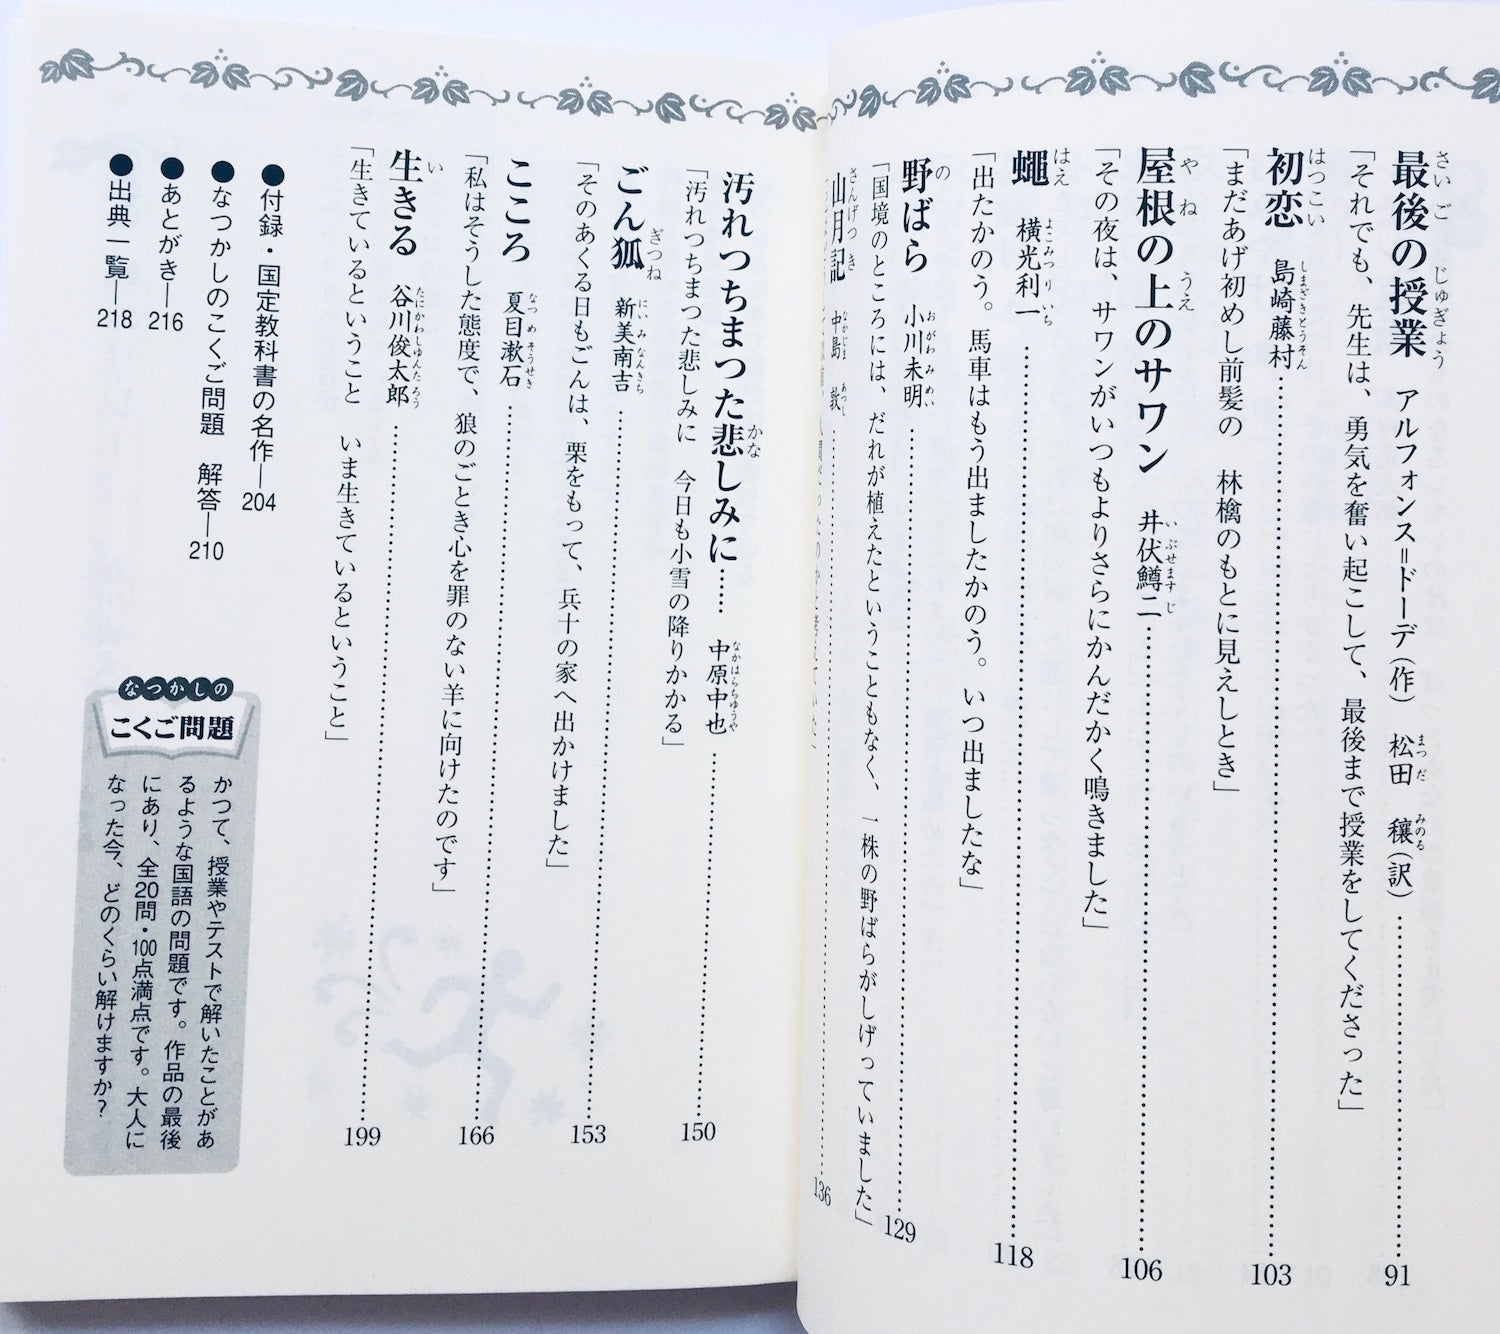 最後の授業　アルフォンス＝ドーデ（作）　松田　穰（訳）……91
「それでも、先生は、勇気を奮い起こして、最後まで授業をしてくださった」
初恋　島崎藤村……103
「まだあげ初めし前髪の　林檎のもとに見えしとき」
屋根の上のサワン　井伏鱒二……106
「その夜は、サワンがいつもよりさらにかんだかく鳴きました」
蠅　横光利一……118
「出たかのう。馬車はもう出ましたかのう。いつ出ましたな」
野ばら　小川未明……129
「国境のところには、だれが植えたということもなく、一株の野ばらがしげっていました」
山月記　中島　敦……136
汚れつちまつた悲しみに……　中原中也……150
「汚れつちまつた悲しみに　今日も小雪の降りかかる」
ごん狐　新美南吉……153
「そのあくる日もごんは、栗をもって、兵十の家へ出かけました」
こころ　夏目漱石……166
「私はそうした態度で、狼のごとき心を罪のない羊に向けたのです」
生きる　谷川俊太郎……199
「生きているということ　いま生きているということ」
●付録・国定教科書の名作―204
●なつかしのこくご問題　解答―210
●あとがき―216
●出典一覧―218
なつかしの
こくご問題
かつて、授業やテストで解いたことがあ
るような国語の問題です。作品の最後
にあり、全20問・100点満点です。大人に
なった今、どのくらい解けますか？